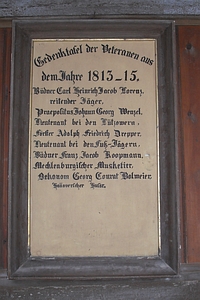 Gedenktafel der Veteranen aus
dem Jahre 1813-15.
Büdner Carl Heinrich Jacob Lorenz,
reisender Jäger.
Praepositus Johann Georg Wenzel,
Lieutenant bei den Lützowern.
Förster Adolph Friedrich Drepper.
Lieutenant bei den Fuß-Jägern.
Büdner Franz Jacob Koopmann,
Mecklenburgischer Musketier.
Oekonom Georg Conrat Bolmeier.
Hanöverscher Husar.